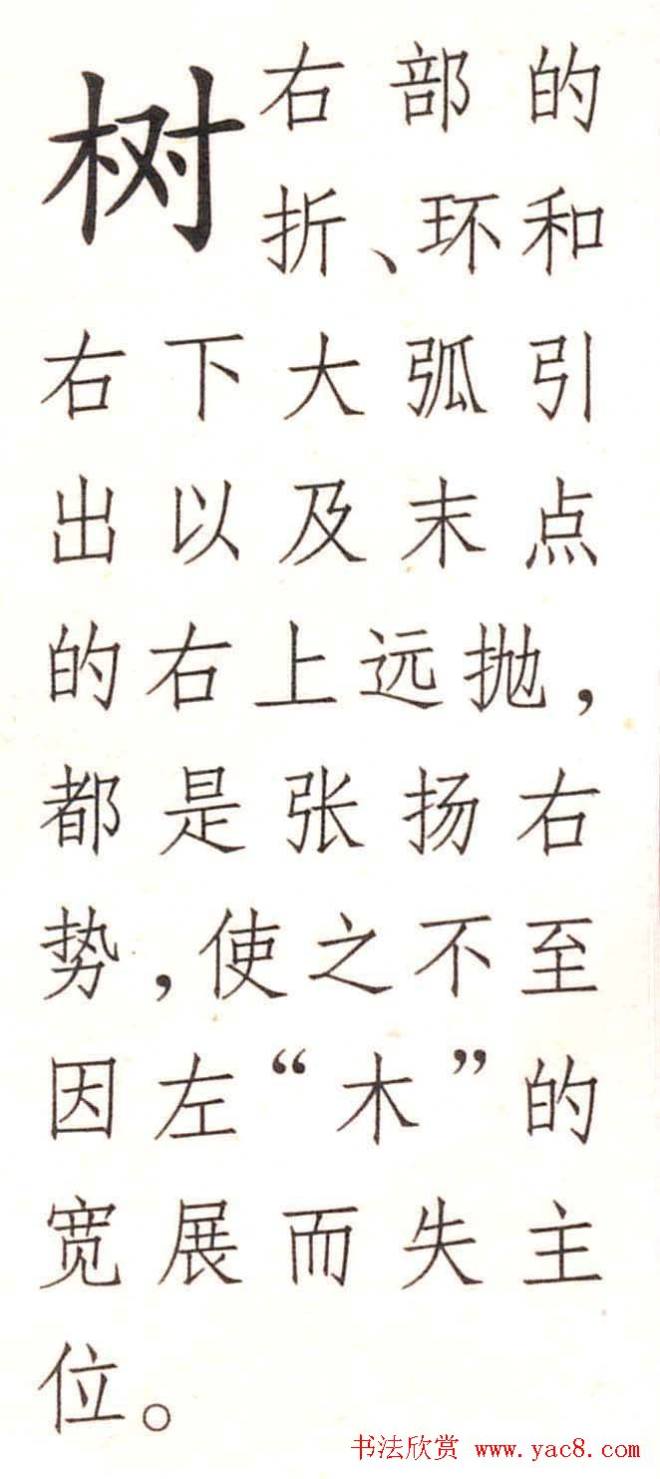 树
右部的
折、环和
右下大弧引
出以及末点
的右上远抛，
都是张扬右
势，使之不至
因左“木”的
宽展而失主
位。
书法欣赏 www.yac8.com